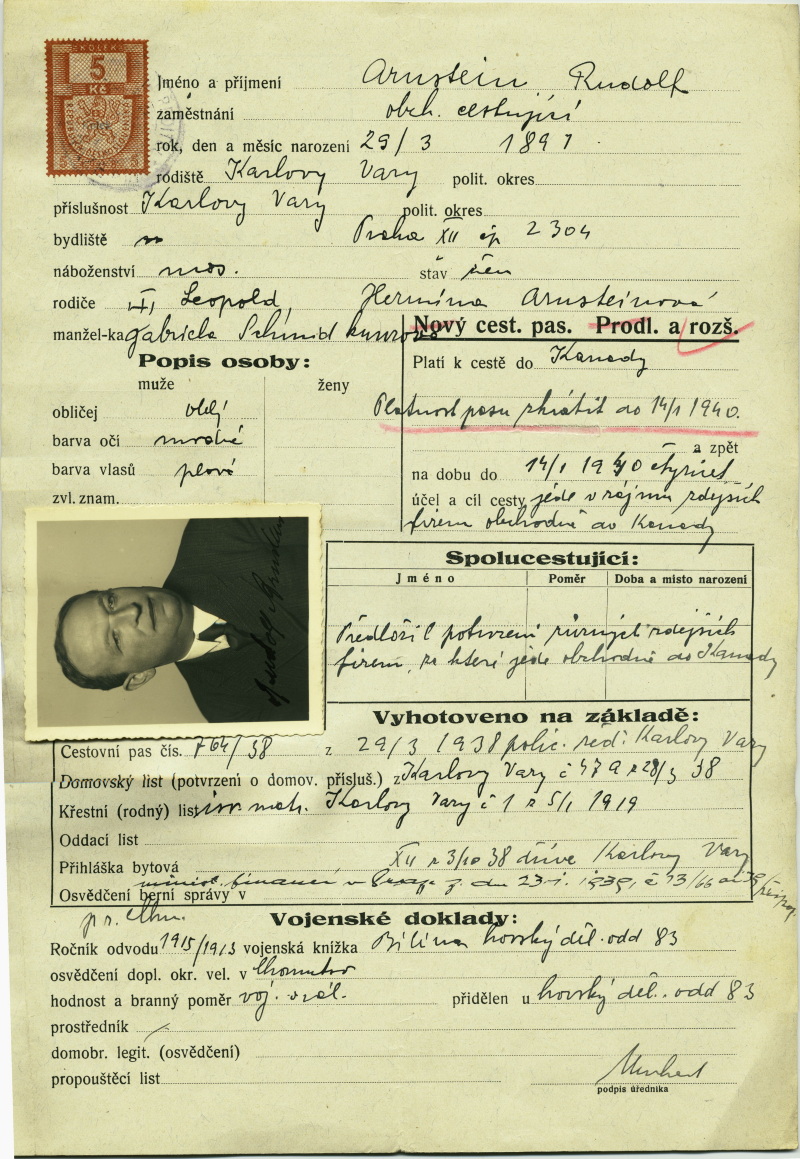 KOLEK
5
Kč
Jméno a příjmení Arnstein Rudolf
zaměstnání obch. cestující
rok, den a měsíc narození 29/3 1897
rodiště Karlovy Vary polit. okres
příslušnost Karlovy Vary polit. okres
bydliště Praha XII čp 2304
náboženství mos. stav žen
rodiče Leopold, Hermina Arnsteinová
manžel-ka Gabriela Schmid
Nový cest. pas. Prodl. a rozš.
Popis osoby:
muže ženy
Platí k cestě do Kanady
obličej
Platnost pasu zkrátit do 14/1 1940.
barva očí modré
a zpět
barva vlasů plavá
na dobu do 14/1 1940 čtyřicet
zvl. znam.
účel a cíl cesty jede v zájmu zdejších
firem obchodně do Kanady
Rudolf Arnstein
Spolucestující:
Jméno Poměr Doba a místo narození
Předložil potvrzení různých zdejších
firem, za které jede obchodně do Kanady
Vyhotoveno na základě:
Cestovní pas čís. 764/38 z 29/3 1938 polic. řed. Karlovy Vary
Domovský list (potvrzení o domov. přísluš.) z Karlovy Vary č 47 a z 28/3 38
Křestní (rodný) list isr. mat. Karlovy Vary č 1 z 5/1 1919
Oddací list
Přihláška bytová XII z 3/10 38 dříve Karlovy Vary
Osvědčení berní správy v minist. financí v Praze z. dne 23.1. 1939, č 13/66
Vojenské doklady:
Ročník odvodu 1915/1913 vojenská knížka Bílina horský děl. odd 83
osvědčení dopl. okr. vel. v Chomutov
hodnost a branný poměr voj. v zál. přidělen u horský děl. odd 83
prostředník
domobr. legit. (osvědčení)
propouštěcí list
podpis úředníka